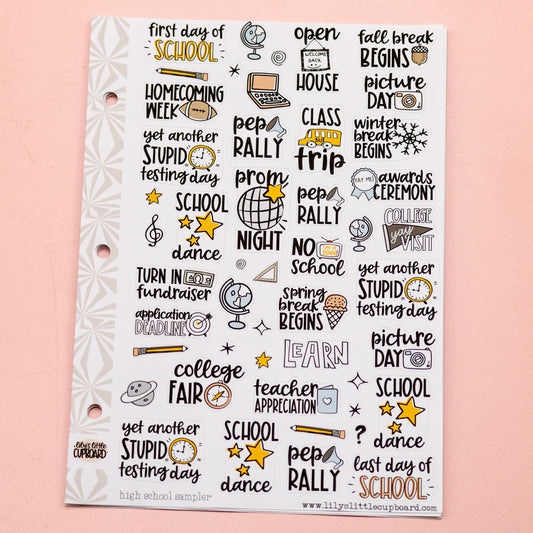 first day of
SCHOOL
open
WELCOME
BACK
HOUSE
fall break
BEGINS
HOMECOMING
WEEK
pep
RALLY
CLASS
trip
picture
DAY
winter
break
BEGINS
yet another
STUPID
testing day
prom
NIGHT
pep
RALLY
YAY ME!
awards
CEREMONY
SCHOOL
dance
NO
SCHOOL
COLLEGE
yay
VISIT
TURN IN
fundraiser
spring
break
BEGINS
yet another
STUPID
testing day
application
DEADLINE
LEARN
picture
DAY
college
FAIR
teacher
APPRECIATION
SCHOOL
dance
yet another
STUPID
testing day
SCHOOL
dance
pep
RALLY
?
last day of
SCHOOL
lily's little
CUPBOARD
high school sampler
www.lilyslittlecupboard.com